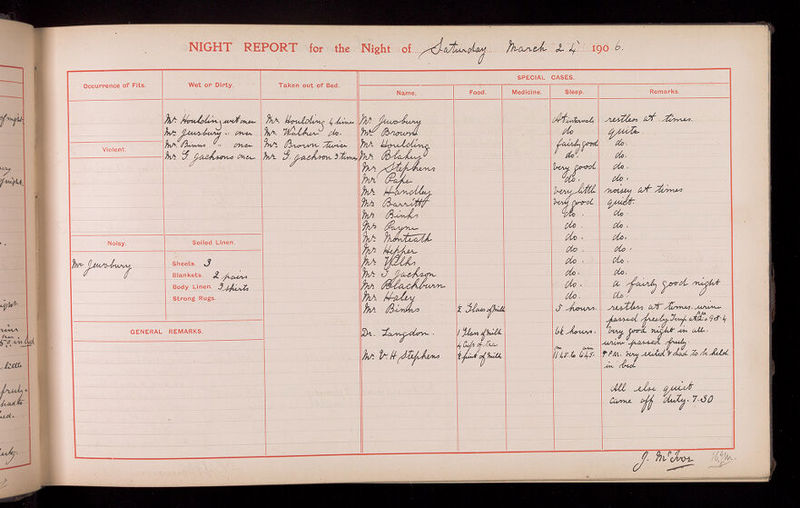 NIGHT REPORT for the Night of Saturday March 24 1906.
SPECIAL CASES.
Occurrence of Fits.
Wet or Dirty.
Taken out of Bed.
Name.
Food.
Medicine.
Sleep.
Remarks.
Mr Houlding wet once
Mr Jewsbury " once
Mr Binns " once
Mr J. Jacksons once
Mr Houlding 4 times
Mr Walker do.
Mr Brown twice
Mr J. Jackson 3 times
Violent.
Noisy.
Mr Jewsbury
Soiled Linen.
Sheets. 3
Blankets. 2 pairs
Body Linen. 3 shirts
Strong Rugs.
GENERAL REMARKS.
Mr Jewsbury At intervals restless at times.
Mr Brown do quite.
Mr Houlding fairly good do.
Mr Blakey do. do.
Mr Stephens very good do.
Mr Pape do. do.
Mr Handley very little noisey at times
Mr Barritt very good quiet.
Mr Binks do. do.
Mr Payne do. do.
Mr Monteath do. do.
Mr Hepher do. do.
Mr Wilks do. do.
Mr J Jackson do. do.
Mr Blackburn do. a fairly good night
Mr Haley do. do.
Mr Binns 2 Glass of milk 5 hours. restless at times. urine
passed freely Temp at
Dr. Langdon. 1 Glass of milk 6½ hours. Very good night in all.
4 Cups of Tea urine passed freely.
Mr V. H. Stephens pint of milk 11.45 to 6.45. 9 P.M. Very excited & had to be held
in bed
All else quiet
Came off duty. 7.30
J. McIvor